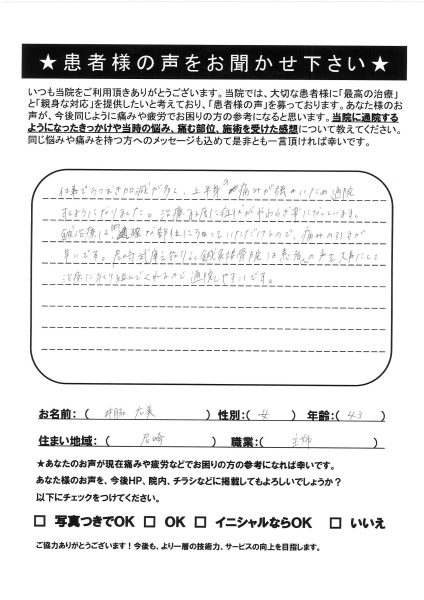 ★患者様の声をお聞かせ下さい★
いつも当院をご利用頂きありがとうございます。当院では、大切な患者様に「最高の治療」
と「親身な対応」を提供したいと考えており、「患者様の声」を募っております。あなた様のお
声が、今後同じように痛みや疲労でお困りの方の参考になると思います。当院に通院する
ようになったきっかけや当時の悩み、痛む部位、施術を受けた感想について教えてください。
同じ悩みや痛みを持つ方へのメッセージも込めて是非とも一言頂ければ幸いです。
仕事でうつむき加減が多く、上半身の痛みが強かったため通院
するようになりました。治療する度に症状がやわらぎ楽になっています。
鍼治療は的確な部位にうっていただけるので、痛みの引きが
早いです。尼崎武庫之荘 鍼灸接骨院は患者の声を大事にして
治療に取り組んでくれるので通院しやすいです。
お名前：（ ）性別：（ 女 ）年齢：（ 43 ）
住まい地域：（ 尼崎 ）職業：（ 主婦 ）
★あなたのお声が現在痛みや疲労などでお困りの方の参考になれば幸いです。
あなた様のお声を、今後HP、院内、チラシなどに掲載してもよろしいでしょうか？
以下にチェックをつけてください。
□ 写真つきでOK □ OK □ イニシャルならOK □ いいえ
ご協力ありがとうございます！今後も、より一層の技術力、サービスの向上を目指します。